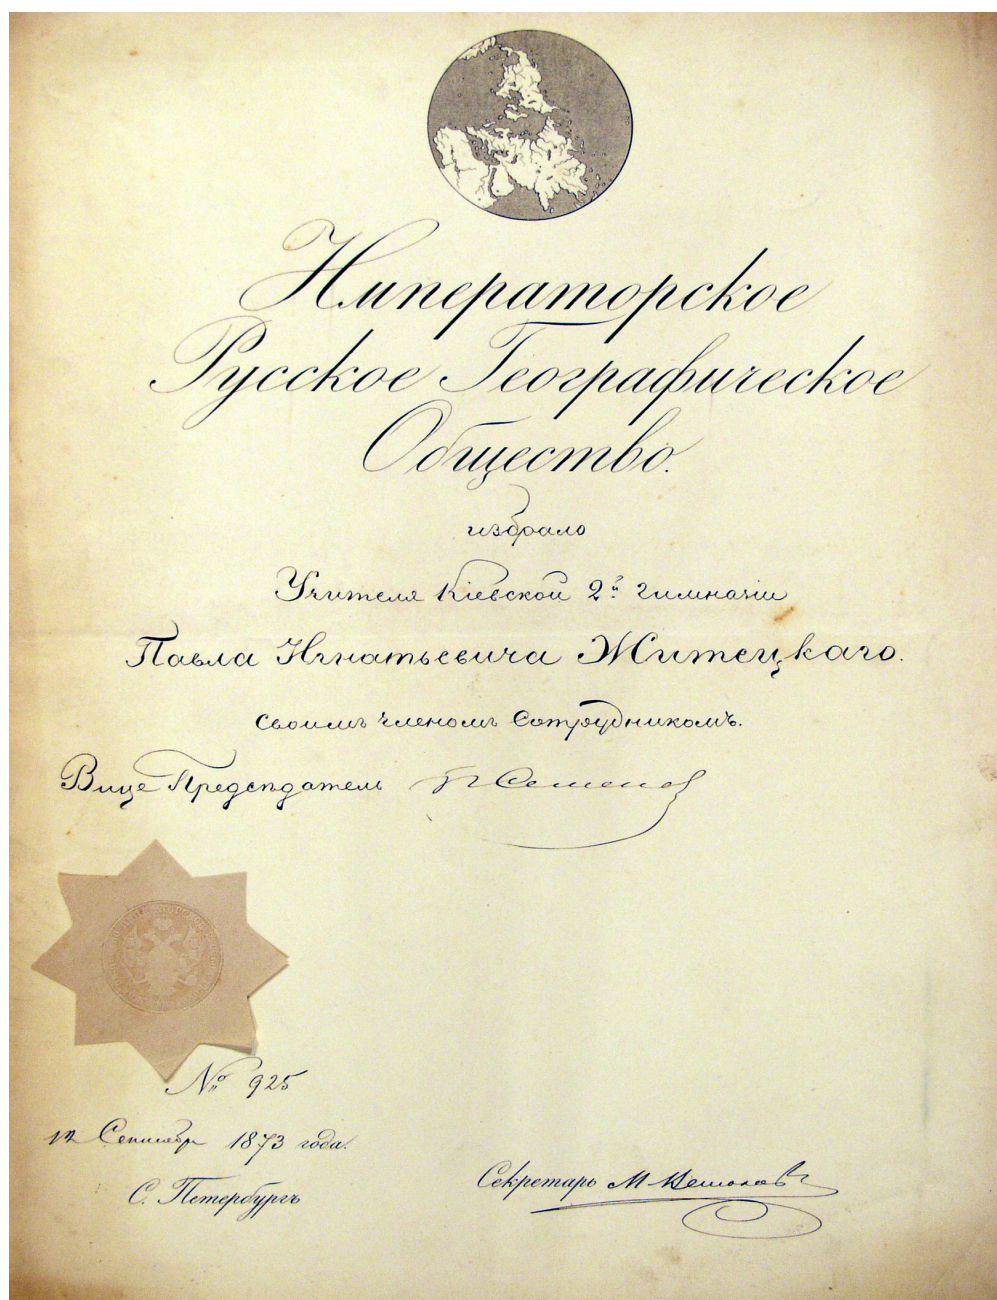 Императорское
Русское Географическое
Общество.
избрало
Учителя Кіевской 2й гимназіи
Павла Игнатьевича Житецкаго.
своимъ членомъ Сотрудникомъ.
Вице Предсѣдатель П Семеновъ
№ 925
Сентября 1873 года.
С. Петербургъ
Секретарь М